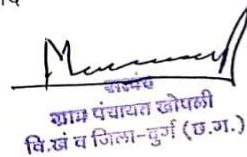 सरपंच
ग्राम पंचायत खोपली
वि.खं व जिला-दुर्ग (छ.ग.)